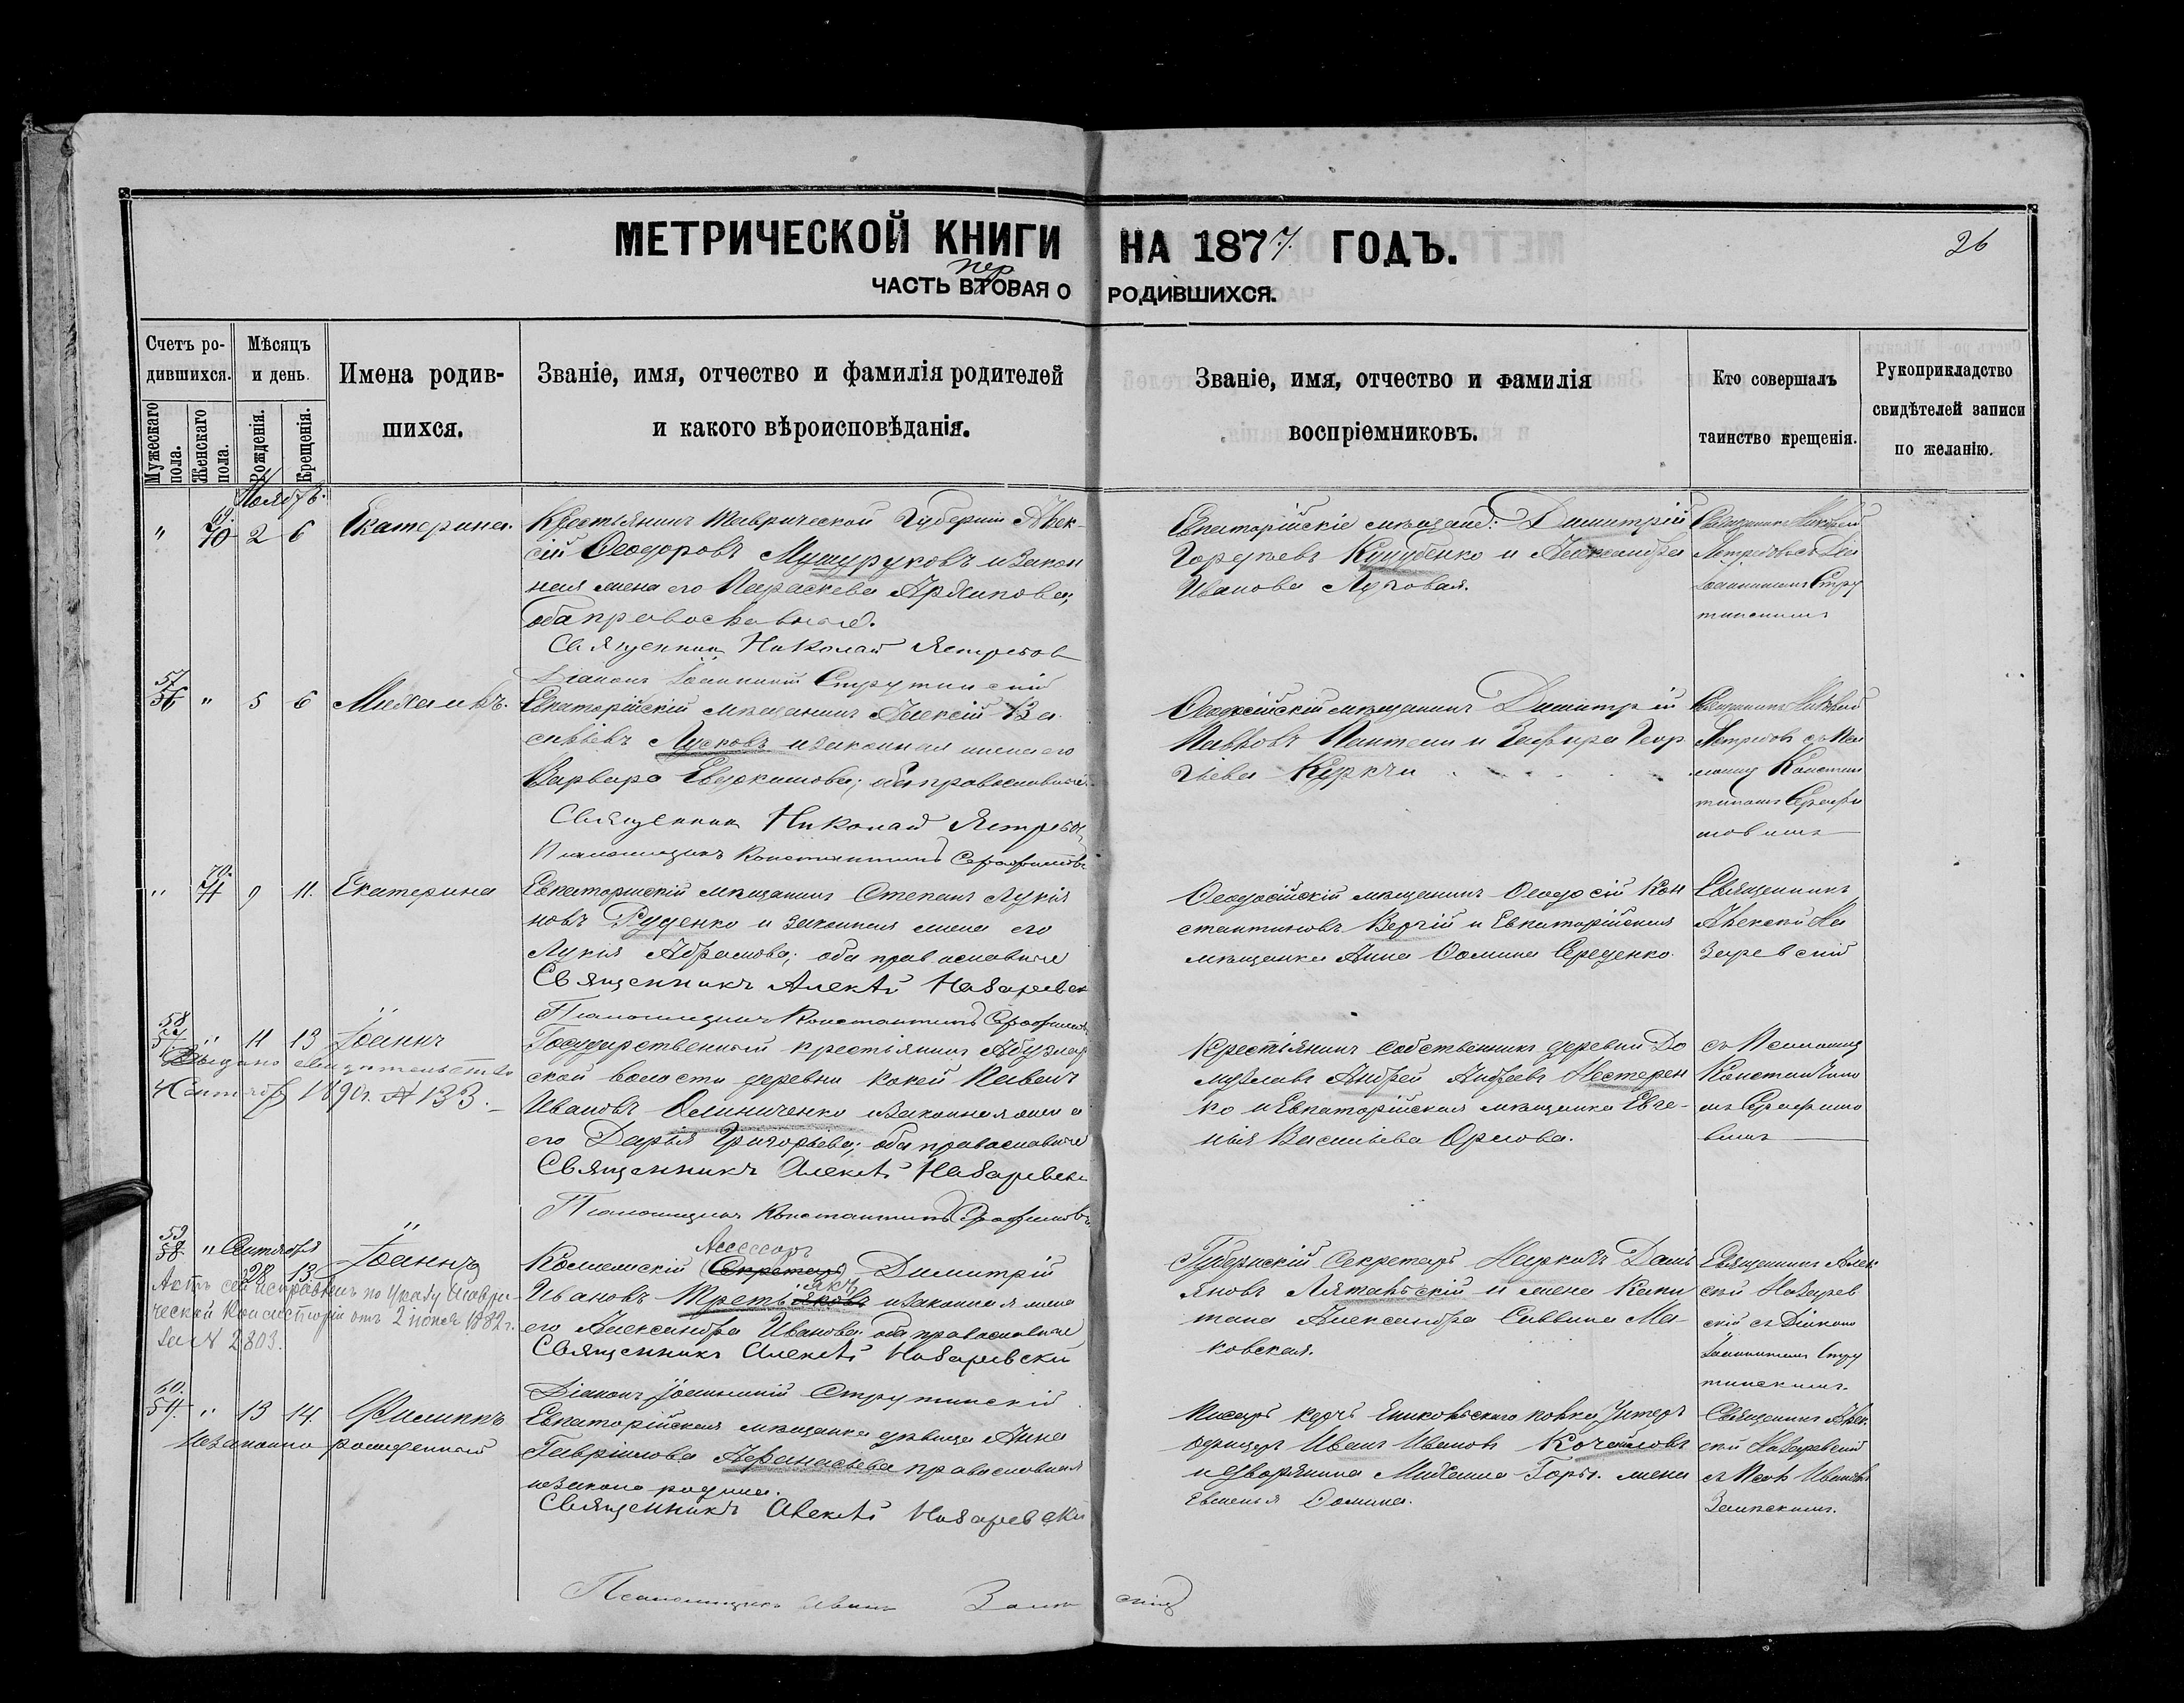 МЕТРИЧЕСКОЙ КНИГИ НА 1877. ГОДЪ.
26
пер
ЧАСТЬ ВТОРАЯ О РОДИВШИХСЯ.
Счетъ родившихся.
Мужескаго пола.
Женскаго пола.
Мѣсяцъ и день.
Рожденія.
Крещенія.
Имена родившихся.
Званіе, имя, отчество и фамилія родителей
и какого вѣроисповѣданія.
Званіе, имя, отчество и фамилія
воспріемниковъ.
Кто совершалъ
таинство крещенія.
Рукоприкладство
свидѣтелей записи
по желанію.
Ноябрь.
" 70 2 6 Екатерина.
Крестьянинъ Таврической Губерніи Алек-
сій Ѳеодоровъ Мушуруковъ и закон
ная жена его Параскева Архипова;
оба православные.
Священник Николай Ястребов
Діаконъ Іоанникій Струтинскій
Евпаторійскіе мѣщане: Димитрій
Гордѣевъ Коцубенко и Александра
Иванова Луговая.
Священникъ Николай
Ястребовъ съ Діа
Іоанникіемъ Стру
тинскимъ
57
56 " 5 6 Михаилъ.
Евпаторійскій мѣщанинъ Алексій Ва
сильевъ Лусковъ и законная жена его
Варвара Евдокимова; оба православные.
Священник Николай Ястребов
Псаломщикъ Константинъ Серафимовъ
Ѳеодосійскій мѣщанинъ Димитрій
Павловъ Пантели и Замфира Геор
гіева Куркчи
Священникъ Николай
Ястребовъ съ Пса
ломщ Констан
тиномъ Серафи
мовымъ
70.
" 71 9 11. Екатерина
Евпаторійскій мѣщанинъ Степанъ Лукія
новъ Руденко и законная жена его
Лукія Абрамова; оба православные
Священникъ Алексѣй Назаревск
Псаломщикъ Константинъ Серафимовъ
Ѳеодосійскій мѣщанинъ Ѳеодосій Кон
стантиновъ Вергій и Евпаторійская
мѣщанка Анна Ѳомина Середенко.
Священникъ
Алексѣй На
заревскій
58
57 " 11 13 Іоаннъ
Выдано свидѣтельство
4 Сентяб 1890г. № 133.
Государственный крестьянинъ Абузлар
ской волости деревни Кокей Павелъ
Ивановъ Олиниченко и законная жена
его Дарія Григорьева; оба православные
Священникъ Алексѣй Назаревск
Псаломщикъ Константинъ Серафимовъ
Крестьянинъ собственникъ деревни До
Андрей Андреевъ Нестерен
ко и Евпаторійская мѣщанка Евге-
нія Васильева Орлова.
съ Псаломщ
Константино
мъ Серафимо
вымъ
59
58. " Сентября
28 13. Іоаннъ
Актъ сей исправленъ по указу Таври-
ческой Консисторіи отъ 2 іюня 1882 г.
за № 2803.
Ассесоръ
Коллежскій Секретарь Димитрій
Ивановъ Третьяковъ и законная жена
его Александра Иванова; оба православные
Священникъ Алексѣй Назаревски
Діаконъ Іоанникій Струтинскій
Губернскій Секретарь Маркіанъ Дамь
яновъ Лятанскій и жена Капи
тана Александра Саввина Ма-
ковская.
Священникъ Алек
сѣй Назарев
скій съ Діакон
Іоанникіемъ Стру
тинскимъ.
60.
59. " 13 14. Филиппъ
незаконно рожденный
Евпаторійская мѣщанка дѣвица Анна
Гавріилова Афанасьева православная
незаконо родила.
Священникъ Алексѣй Назаревски
Псаломщикъ Иванъ Залѣскій
Писарь Керчь Ениковьскаго полка Унтеръ
офицеръ Иванъ Ивановъ Кочайловъ
и дворянина Михаила Горы. жена
Евменія Ѳомина.
Священникъ Алек.
сѣй Назаревскій
съ Псал Иваномъ
Залѣскимъ.